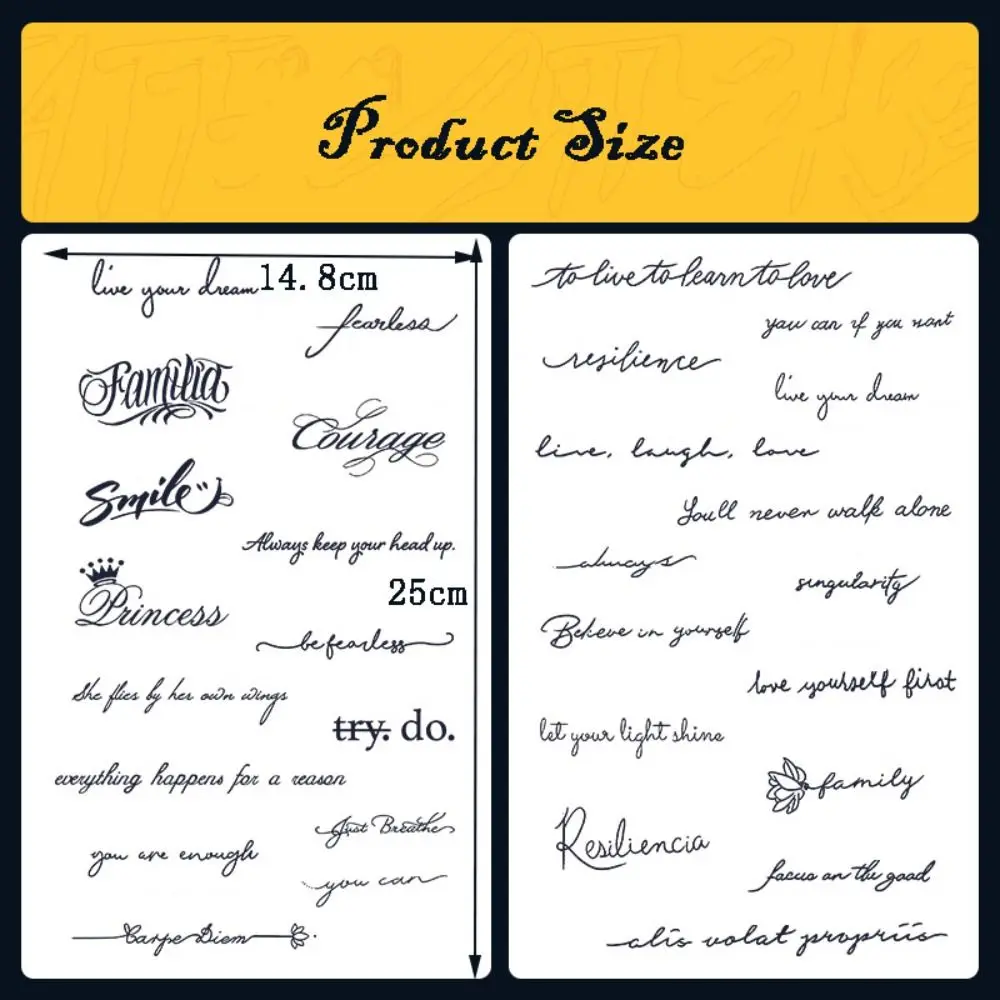 Product Size
live your dream
14.8cm
fearless
Familia
Courage
Smile
Always keep your head up.
Princess
25cm
be fearless
She flies by her own wings
try. do.
everything happens for a reason
Just Breathe
you are enough
you can
Carpe Diem
to live to learn to love
you can if you want
resilience
live your dream
live, laugh, love
You'll never walk alone
always
singularity
Believe in yourself
love yourself first
let your light shine
family
Resiliencia
focus on the good
alis volat propriis